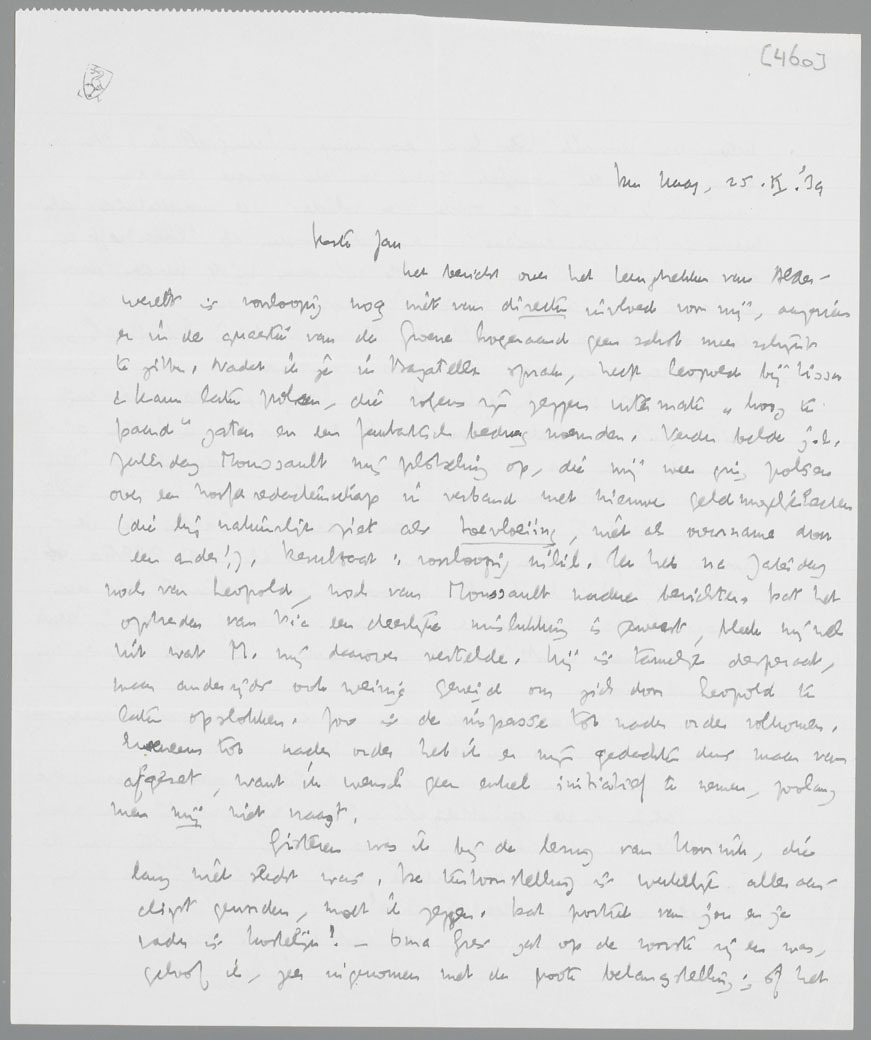 [460]
Den Haag, 25.XI.'39
Beste Jan
het bericht over het leegtrekken van Alder-
werelt is voorloopig nog niet van directe invloed voor mij, aangezien
er in de quaestie van de Groene hoegenaamd geen schot meer schijnt
te zitten. Nadat ik je in Bagatelle sprak, heeft Leopold bij
& Kann laten polsen, die volgens zijn zeggen uitermate "hoog te
paard" zaten en een fantastisch bedrag noemden. Verder belde j.l.
Zaterdag Moussault mij plotseling op, die mij weer ging polsen
over een redacteurschap in verband met nieuwe geldmogelijkheden
(die hij natuurlijk ziet als toevloeiing, niet als overname door
een ander!). Resultaat: voorloopig nihil. Ik heb na Zaterdag
noch van Leopold, noch van Moussault nadere berichten. Dat het
optreden van Vic een deerlijke mislukking is geweest, bleek mij wel
uit wat M. mij daarover vertelde. Hij is tamelijk desperaat,
maar anderzijds ook weinig geneigd om zich door Leopold te
laten opslokken. Zoo is de impasse tot nader order volkomen.
Eveneens tot nader order heb ik er mijn gedachten dus maar van
afgezet, want ik wensch geen enkel initiatief te nemen, zoolang
men mij niet vraagt.
Gisteren was ik bij de lezing van Hoornik, die
lang niet slecht was. De tentoonstelling is werkelijk alleraar-
digst geworden, moet ik zeggen. Dat portret van jou en je
vader is kostelijk! – Oma Gres zat op de voorste rij en was,
geloof ik, zeer ingenomen met de groote belangstelling; of het